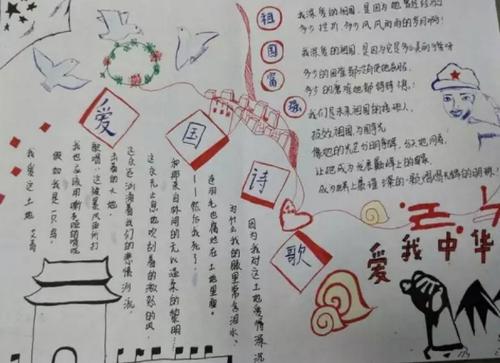 祖国富强
我深爱的祖国,是因为她曾经经历
多少拼打,多少风风雨雨的岁月啊!
我深爱的祖国,是因为它是多么美丽
多少的困难都没有使她屈服
多少的磨难她都
我们是未来祖国的接班人,
报效祖国,为国争光
像她的光芒
让她成为
成为世界上
爱国诗歌
我爱这土地 艾青
假如我是一只鸟,
我也应该用嘶哑的喉咙
歌唱:这被暴风雨所打
击着的土地,
这永远汹涌着我们的悲愤河流,
这无止息地吹刮着的激怒的风,
和那来自林间的无比温柔的黎明…
——然后我死了,
连羽毛也腐烂在土地里面。
为什么我的眼里常含泪水,
因为我对这土地爱得深沉
爱我中华